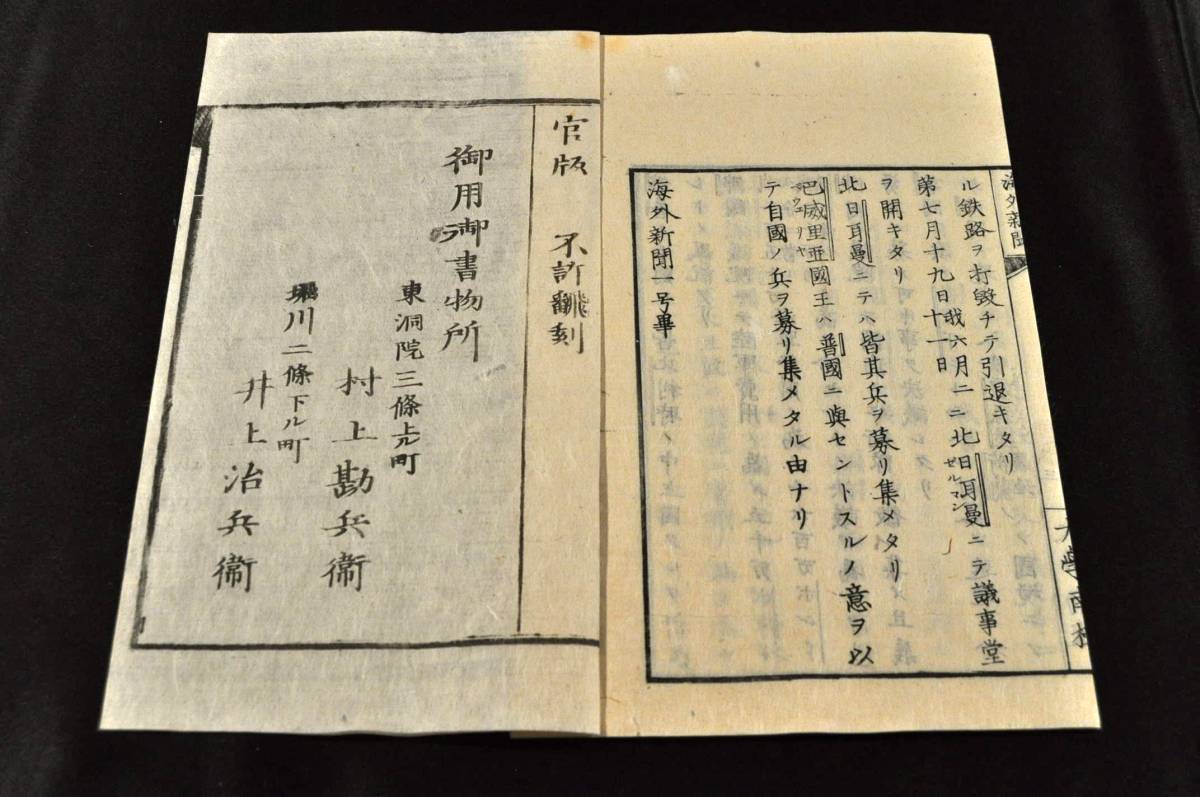 海外新聞
ル鉄路ヲ打毀チテ引退キタリ
第七月十九日我六月二十一日ニ北日耳曼ゼルマンニテ議事堂
ヲ開キタリ
北日耳曼ニテハ皆其兵ヲ募リ集メタリ
巴威里亜國王ハ普國ニ與セントスルノ意ヲ以
テ自國ノ兵ヲ募リ集メタル由ナリ
海外新聞一号畢
大學南校
官版 不許飜刻
御用御書物所
東洞院三條上ル町
村上勘兵衞
堀川二條下ル町
井上治兵衞